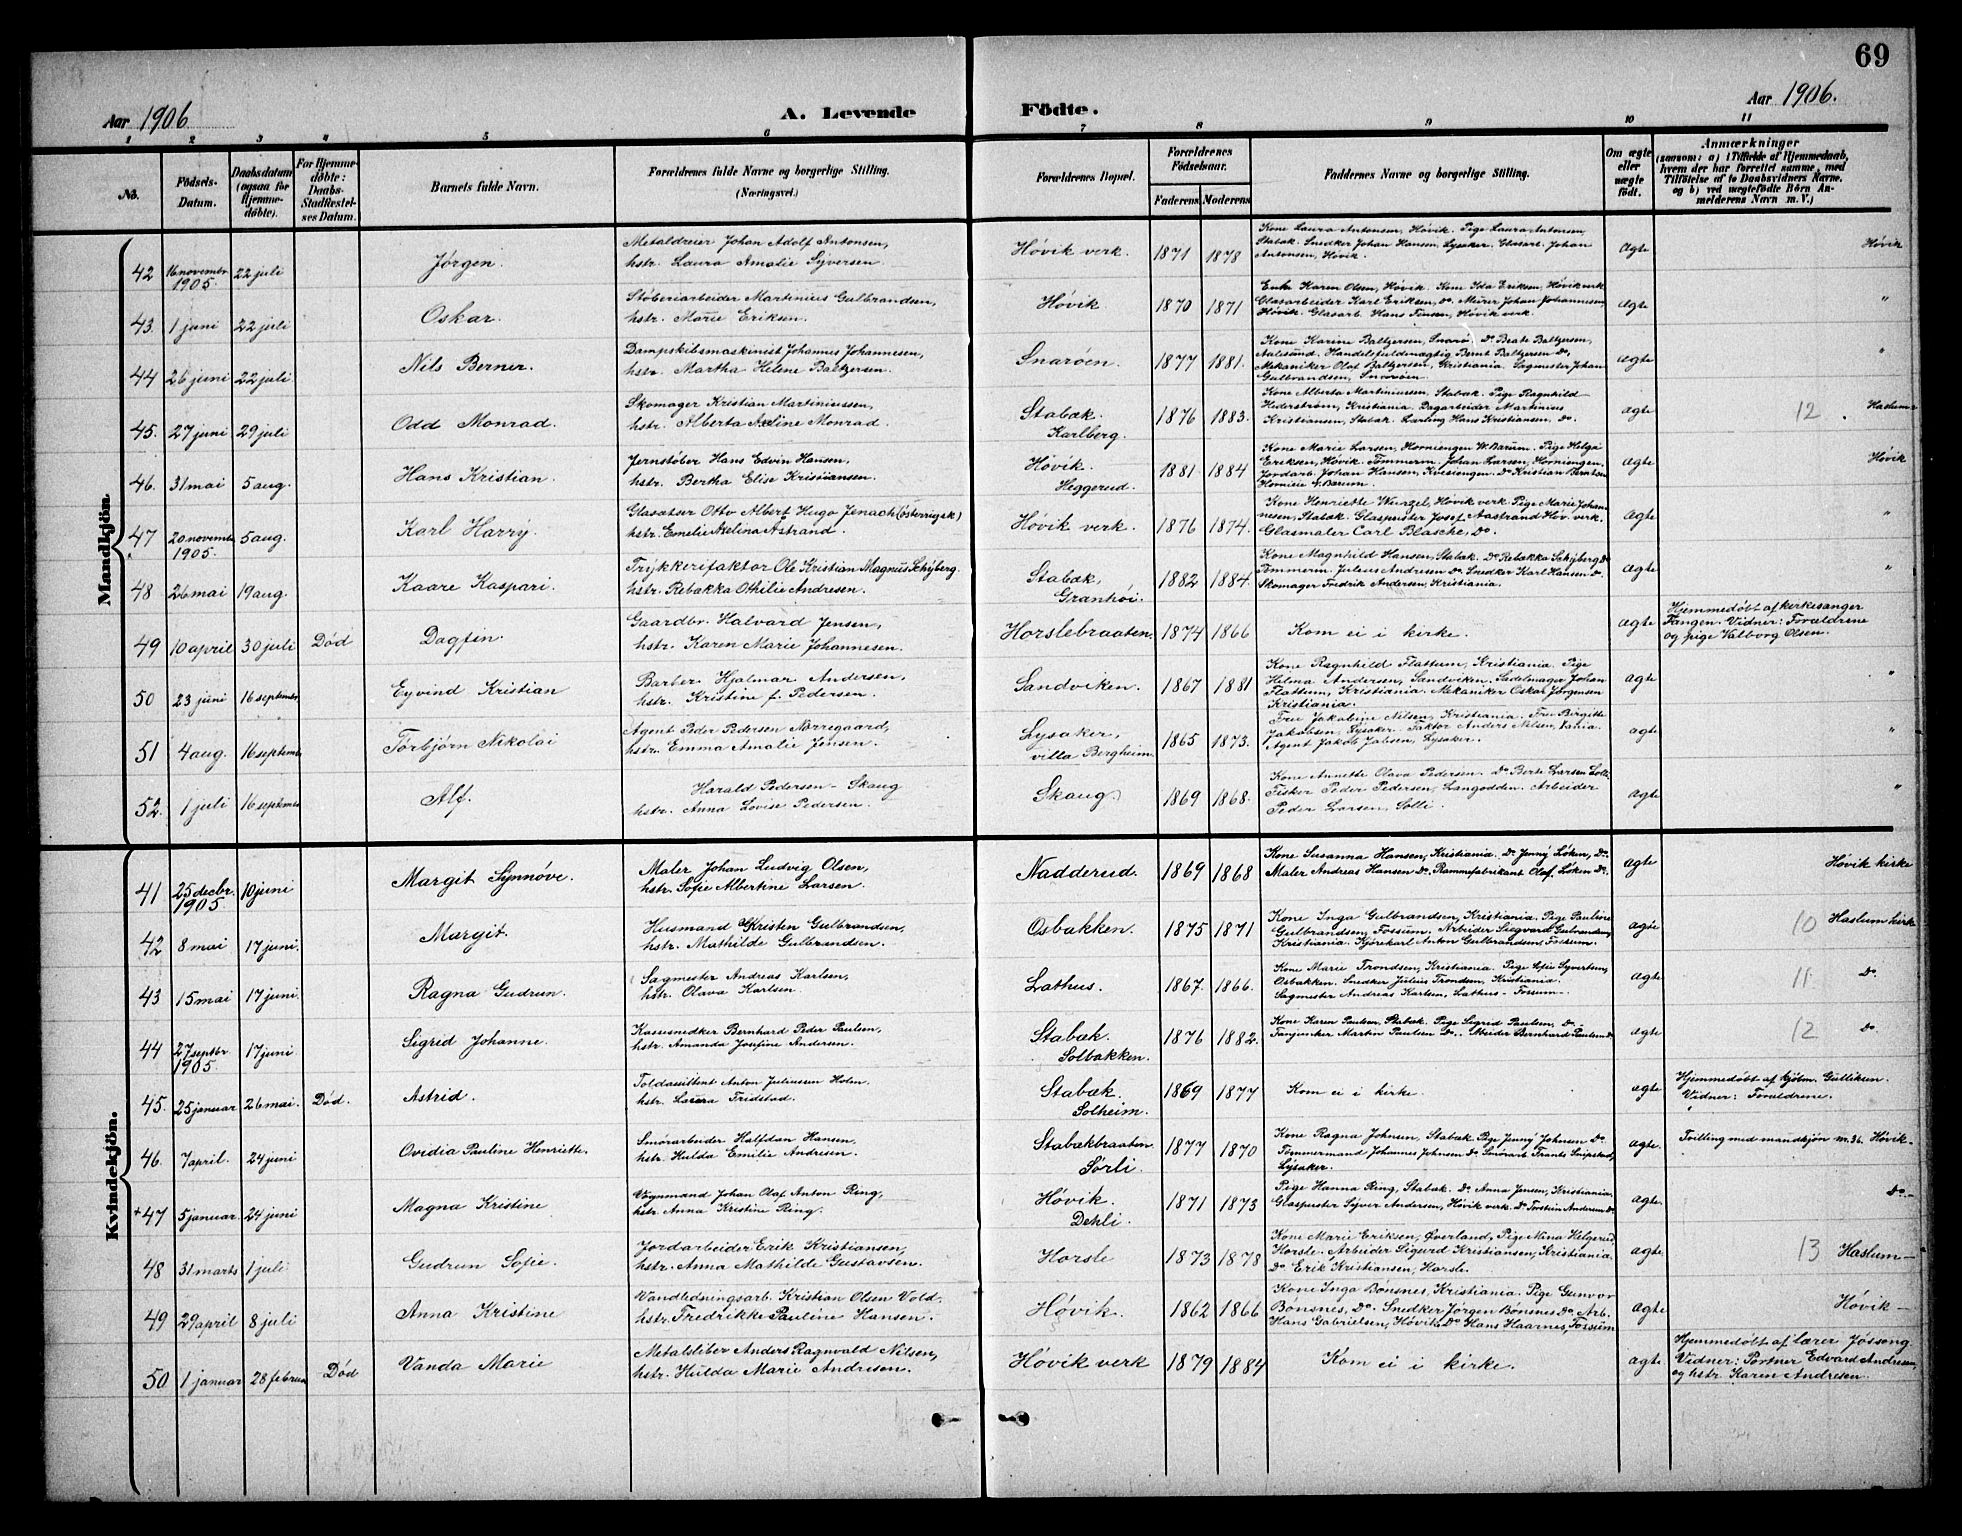 69
Aar 1906
A. Levende Födte.
Aar 1906.
1 2 3 4 5 6 7 8 9 10 11
No.
Födsels-Datum.
Daabsdatum (ogsaa for Hjemmedöbte).
For Hjemmedöbte: Daabs-Stadfæstelses Datum.
Barnets fulde Navn.
Forældrenes fulde Navne og borgerlige Stilling. (Næringsvei.)
Forældrenes Bopæl.
Forældrenes Födselsaar.
Faderens Moderens
Faddernes Navne og borgerlige Stilling.
Om ægte eller uægte födt.
Anmærkninger
(saasom: a) i Tilfælde af Hjemmedaab, hvem der har forrettet samme, med Tilföielse af to Daabsvidners Navne, og b) ved uægtefödte Börn Anmelderens Navn m. V.)
Mandkjön.
42 16 novembr 1905. 22 juli Jørgen. Metaldreier Johan Adolf Antonsen, hstr. Laura Amalie Syversen Høvik verk. 1871 1878 Kone Laura Antonsen, Høvik. Pige Laura Antonsen Stabæk. Snedker Johan Hansen, Lysaker. Glasarb. Johan Antonsen, Høvik. Ægte Høvik
43. 1 juni 22 juli Oskar. Støberiarbeider Martinius Gulbrandsen, hstr. Marie Eriksen. Høvik 1870 1871 Enke Karen Olsen, Høvik. Kone Ida Eriksen, Høvik verk Glasarbeider Karl Eriksen, do. Murer Johan Johannesen, Høvik. Glasarb. Hans Finsen, Høvik verk. ægte "
44 26 juni 22 juli Nils Berner. Dampskibsmaskinist Johannes Johannesen, hstr. Martha Helene Baltzersen. Snarøen. 1877 1881. Kone Karine Baltzersen, Snarø. Do Beate Baltzersen, Aalesund, Handelsfuldmægtig Bernt Baltzersen do. Mekaniker Olaf Baltzersen, Kristiania. Sagmester Johan Gulbrandsen, Snarøen. ægte "
45. 27 juni 29 juli Odd Monrad. Skomager Kristian Martiniussen, hstr. Alberta Axeline Monrad. Stabæk. Karlberg. 1876 1883. Kone Alberta Martiniussen, Stabæk. Pige Ragnhild Hederstrøm, Kristiania. Dagarbeider Martinius Kristiansen, Stabæk. Lærling Hans Kristiansen, do. ægte 12 Haslum
46. 31 mai 5 aug. Hans Kristian. Jernstøber Hans Edvin Hansen, hstr. Bertha Elise Kristiansen. Høvik. Heggerud. 1881 1884 Kone Marie Larsen, Horniengen V. Bærum. Pige Helga Eriksen, Høvik. Tømmerm. Johan Larsen, Horniengen. Jordarb. Johan Hansen, Do Kristian Berntsen ægte Høvik
47 20 novembr 1905. 5 aug. Karl Harry. Glasætser Otto Albert Hugo Jenach (østerrigsk) hstr. Emelie Axelina Åstrand. Høvik verk. 1876 1874. Kone Henriette Wenzel, Høvik verk. Pige Marie Johannesen, Stabæk. Glaspuster Josef Aastrand Høv. verk. Glasmaler Carl Blasche, do. ægte "
48 26 mai 19 aug. Kaare Kaspari. Trykkerifaktor Ole Kristian Magnus Schjberg. hstr. Rebakka Othilie Andresen. Stabæk, Granhøi. 1882 1884. Kone Magnhild Hansen, Stabæk. Do Rebakka Schjberg do Tømmerm. Julius Andresen do. Snedker Karl Hansen do. Skomager Fredrik Andersen, Kristiania. ægte "
49 10 april 30 juli Død Dagfin. Gaardbr. Halvard Jensen, hstr. Karen Marie Johannesen. Horslebraaten. 1874 1866 Kom ei i kirke. ægte Hjemmedøbt af kirkesanger Fangen. Vidner: Forældrene og pige Valborg Olsen.
50 23 juni 16 septembr. Eyvind Kristian Barber Hjalmar Andersen, hstr. Kristine f. Pedersen. Sandviken. 1867 1881 Kone Ragnhild Flattum, Kristiania. Pige Helma Andersen, Sandviken. Sadelmager Johan Flattum, Kristiania. Mekaniker Oskar Jørgensen Kristiania. ægte "
51 4 aug. 16 septembr Torbjørn Nikolai Agent Peder Pedersen Nørregaard, hstr. Emma Amalie Jensen. Lysaker, villa Bergheim. 1865 1873. Fru Jakobine Nilsen, Kristiania. Fru Birgitte Jakobsen, Lysaker. Faktor Anders Nilsen, Agent Jakob Lysaker. ægte "
52. 1 juli 16 septembr Alf. Harald Pedersen - Skaug hstr. Anna Lovise Pedersen. Skaug. 1869 1868. Kone Annette Olava Pedersen. Do Berte Larsen Solli. Fisker Peder Pedersen, Langodden. Arbeider Peder Larsen, Solli. ægte "
Kvindekjön.
41 25 decbr. 1905. 10 juni Margit Synnøve. Maler Johan Ludvig Olsen, hstr. Sofie Albertine Larsen. Nadderud. 1869 1868 Kone Susanna Hansen, Kristiania. Do Jenny Løken, do. Maler Andreas Hansen do. Rammefabrikant Olaf Løken do. ægte Høvik kirke
42 8 mai 17 juni. Margit. Husmand Kristen Gulbrandsen, hstr. Mathilde Gulbrandsen. Osbakken. 1875 1871 Kone Inga Gulbrandsen, Kristiania. Pige Pauline Gulbrandsen, Fossum. Arbeider Siegvard Gulbrandsen, Kristiania. Kjørekarl Anton Gulbrandsen, Fossum. ægte 10 Haslum kirke
43 15 mai 17 juni. Ragna Gudrun. Sagmester Andreas Karlsen, hstr. Olava Karlsen. Lathus. 1867. 1866. Kone Marie Trondsen, Kristiania. Pige Sofie Syvertsen, Osbakken. Snedker Julius Trondsen, Kristiania. Sagmester Andreas Karlsen, Lathus - Fossum. ægte 11 Do
44 27 septbr 1905. 17 juni Sigrid Johanne. Kassesnedker Bernhard Peder Paulsen, hstr. Amanda Josefine Andersen. Stabæk. Solbakken. 1876 1882. Kone Karen Paulsen, Stabæk. Pige Sigrid Paulsen, do. Martin Paulsen do. Arbeider Bernhard Paulsen do ægte 12 Do
45. 25 januar 26 mai. Død. Astrid. Toldassistent Anton Juliussen Holm. hstr. Laura Tridstad. Stabæk. Solheim. 1869 1877 Kom ei i kirke. ægte Hjemmedøbt af kjøbm. Gulliksen. Vidner: Forældrene.
46. 7 april. 24 juni Ovidia Pauline Henriette. Smørarbeider Halfdan Hansen, hstr. Hulda Emilie Andresen. Stabækbraaten Sørli. 1877 1870 Kone Ragna Johnsen, Stabæk. Pige Jenny Johnsen do. Tømmermand Johannes Johnsen do. Smørarb. Frants Lysaker. ægte. Tvilling med mandkjøn nr. 36. Høvik-
+47 5 januar. 24 juni Magna Kristine Vognmand Johan Olaf Anton Ring, hstr. Anna Kristine Ring. Høvik. Dehli. 1871 1873 Pige Hanna Ring, Stabæk. Do. Anna Jensen, Kristiania. Glaspuster Syver Andersen, Høvik verk. Do Torstein Andersen do ægte Do.-
48 31 marts 1 juli Gudrun Sofie. Jordarbeider Erik Kristiansen, hstr. Anna Mathilde Gustavsen. Horsle 1873 1878 Kone Marie Eriksen, Øverland, Pige Mina Helgerud, Horsle. Arbeider Sigurd Kristiansen, Kristiania. Do. Erik Kristiansen, Horsle. ægte 13 Haslum-
49 29 april 8 juli Anna Kristine Vandledningsarb. Kristian Olsen Vold. hstr. Fredrikke Pauline Hansen. Høvik. 1862 1866 Kone Inga Bønsnes, Kristiania. Pige Gunvor Bønsnes, do. Snedker Jørgen Bønsnes do, Arb. Hans Gabrielsen, Høvik, Do Hans Haarnes, Fossum ægte Høvik-
50 1 januar 28 februa Død Vanda Marie Metalsliber Anders Ragnvald Nilsen, hstr. Hulda Marie Andresen. Høvik verk 1879 1884 Kom ei i kirke. ægte Hjemmedøbt af lærer Jøssong. Vidner: Portner Edvard Andresen, og hstr. Karen Andresen.